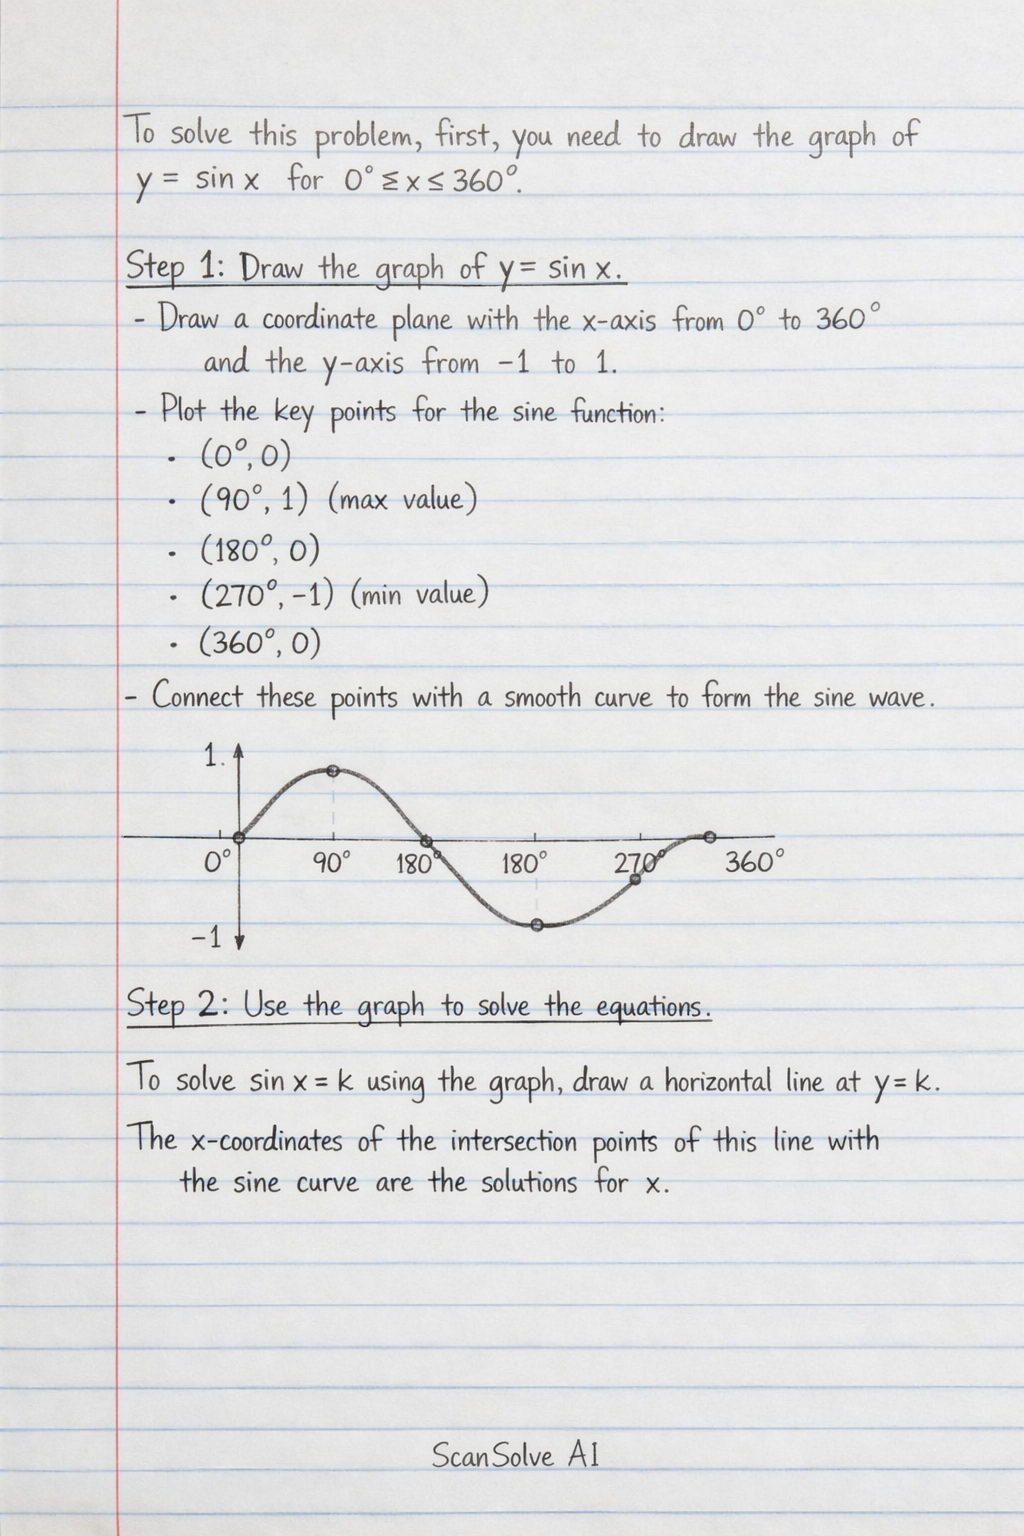 To solve this problem, first, you need to draw the graph of
y = sin x for 0° ≥ x ≤ 360°.
Step 1: Draw the graph of y = sin x.
- Draw a coordinate plane with the x-axis from 0° to 360°
and the y-axis from -1 to 1.
- Plot the key points for the sine function:
• (0°, 0)
• (90°, 1) (max value)
• (180°, 0)
• (270°, -1) (min value)
• (360°, 0)
- Connect these points with a smooth curve to form the sine wave.
1.
0° 90° 180° 180° 270° 360°
-1
Step 2: Use the graph to solve the equations.
To solve sin x = k using the graph, draw a horizontal line at y = k.
The x-coordinates of the intersection points of this line with
the sine curve are the solutions for x.
ScanSolve AI